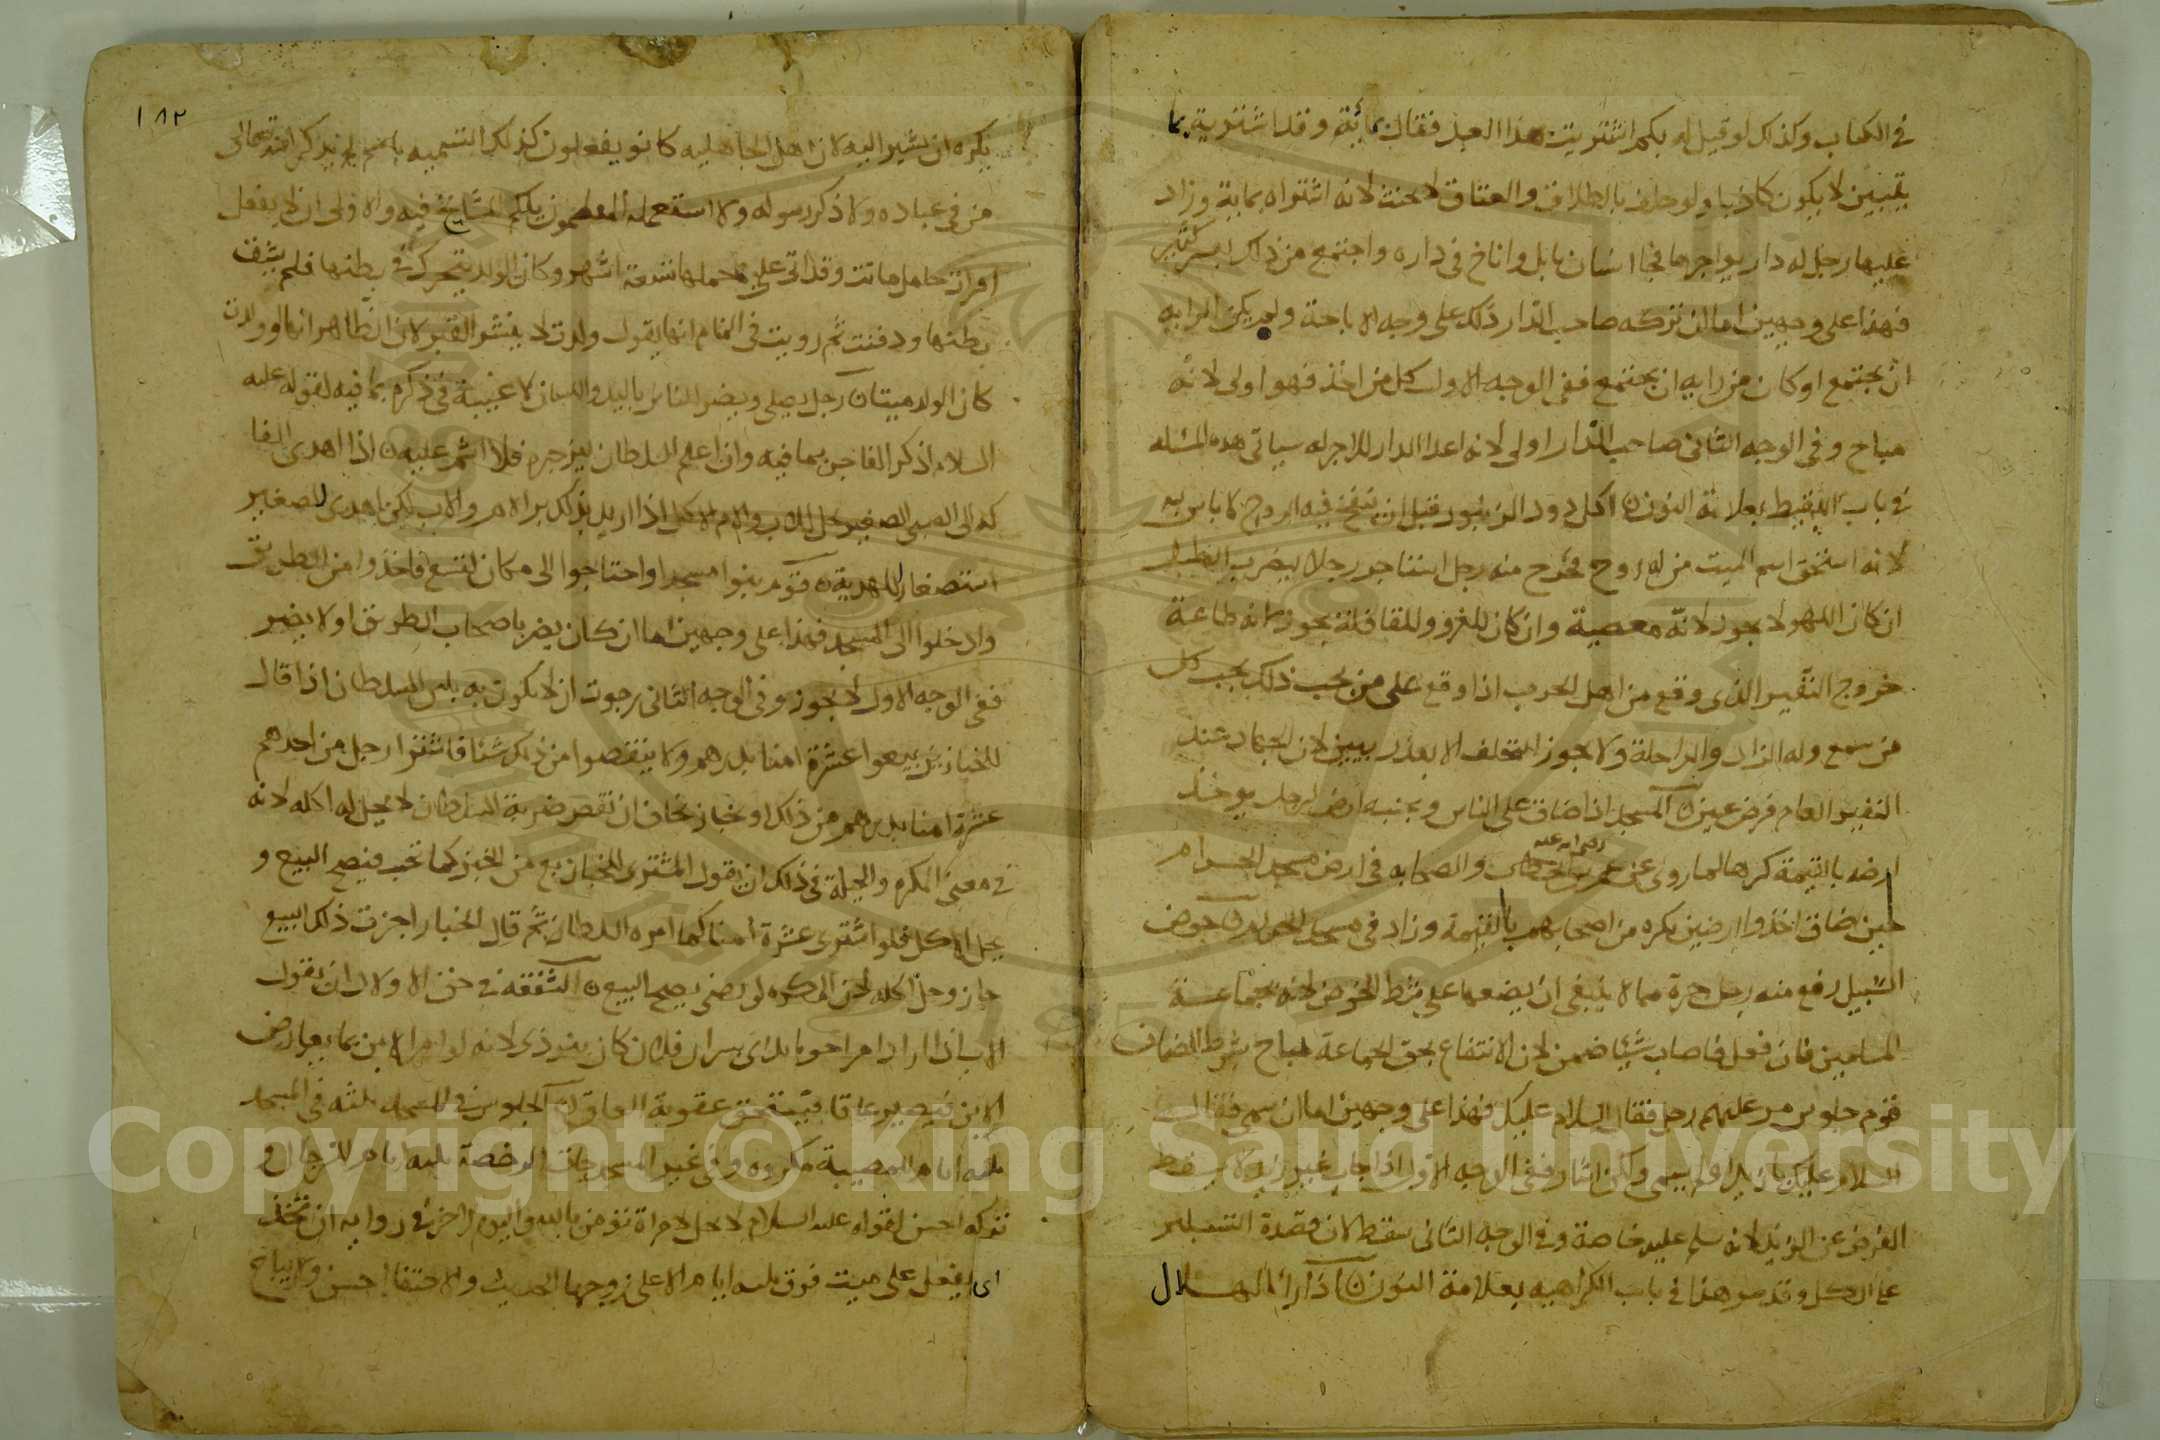 في الكتاب وكذلك لو قيل له بكم اشتريت هذا العبد فقال بمائة وقد اشتريته بما
يتبين لا يكون كاذبا ولو حلف بالطلاق والعتاق لا يحنث لانه اشتراه بماية وزاد
عليها رجل له دار يواجرها فجا انسان بابل واناخ في داره واجتمع من ذلك بعر كثير
فهذا على وجهين اما ان تركه صاحب الدار ذلك على وجه الاباحة ولم يكن الرايه
ان يجتمع او كان من رايه ان يجتمع ففي الوجه الاول كل من اخذ فهو اولى لانه
مباح وفي الوجه الثاني صاحب الدار اولى لانه اعد الدار للاجر له سياتي هذه المسئله
في باب اللقيط بعلامة النون اكل دود الزنبور قبل ان ينفخ فيه الروح لا باس به
لانه استحق اسم الميت من له روح فخرج منه رجل استاجر رجلا ليضرب الطبل
ان كان اللهو لا يجوز لانه معصية وان كان للغزو وللقافلة يجوز لانه طاعة
خروج النفير الذي وقع من اهل الحرب اذا وقع على من يجب ذلك يجب كل
من سمع وله الزاد والراحلة ولا يجوز التخلف الا بعذر بيين لان الجهاد عند
النفير العام فرض عين المسجد اذا ضاق على الناس وبجنبه ارض لرجل يوخذ
ارضه بالقيمة كرها لما روى عن عمر بن الخطاب رضي الله عنه والصحابه في ارض مسجد الحرام
حين ضاق اخذوا ارضين بكره من اصحابهم بالقيمة وزاد في مسجد الحرام حوض
السبيل رفع منه رجل جرة مما لا ينبغي ان يضعها على شط الحوض لانه لجماعة
المسلمين فان فعل فاصاب شيئا ضمن لان الانتفاع بحق الجماعة مباح بشرط الضمان
قوم جلوس مر عليهم رجل فقال السلام عليك فهذا على وجهين اما ان سمى فقال
السلام عليك يا زيد او لم يسمى ولكن اشار ففي الوجه الاول اذا اجاب غير زيد لا يسقط
الفرض عن الزيد لانه سلم عليه خاصة وفي الوجه الثاني سقط لان قصده التسليم
على الكل وقد مر هذا في باب الكراهيه بعلامة النون اذا راى الهلال
١٨٢
يكره ان يشير اليه لان اهل الجاهليه كانو يفعلون كذلك التسميه باسم لم يذكر الله تعالى
من في عباده ولا ذكر رسوله ولا استعمله المسلمون تكلم المشايخ فيه والاولى ان لا يفعل
امراة حامل ماتت وقد اتى على حملها تسعة اشهر وكان الولد يتحرك في بطنها فلم يشق
بطنها ودفنت ثم رويت في المنام انها يقول ولدت لا ينبش القبر لان الظاهر انها لو ولدت
كان الولد ميتا رجل يصلي ويضر الناس باليد واللسان لا غيبة في ذكرم بما فيه لقوله عليه
السلام اذكر الفاجر بما فيه وان اعلم السلطان ليزجره فلا اثم عليه اذا اهدى الفا
كه الى الصبي الصغير حل للاب والام الاكل اذا اريد بذلك بر الام والاب لكن اهدى للصغير
استصغارا للهدية قوم بنوا مسجدا واحتاجوا الى مكان ليتسع فاخذوا من الطريق
وادخلوا الى المسجد فهذا على وجهين اما ان كان يضر باصحاب الطريق اولا يضر
ففي الوجه الاول لا يجوز وفي الوجه الثاني رجوت ان لا يكون به باس السلطان اذا قال
للخبازين بيعوا عشرة امنا بدرهم ولا ينقصوا من ذلك شئا فاشترا رجل من احدهم
عشرة امنا بدرهم من ذلك او خباز يخاف ان نقص ضربة السلطان لا يحل له اكله لانه
في معنى المكره والحيلة في ذلك ان يقول المشتري للخباز بع من الخبز كما تحب فيصح البيع و
يحل الاكل فلو اشترى عشرة امنا كما امره السلطان ثم قال الخباز اجزت ذلك البيع
جاز وحل اكله لان المكره لو رضي يصح البيع الشفقة في حق الاولاد ان يقول
الاب اذا اراد امرا جو بابد اى پسران فلان كان يفوذى لانه لو امر الابن بما يعارض
الابن فيصير عاقا فيستحق عقوبة العاق الجلوس في المصيبه ثلثه في المسجد
ثلثه ايام المصيبة مكروه وفي غير المسجد جات الرخصة ثلثه ايام للرجال و
تركه احسن لقوله عليه السلام لا يحل لامراة تؤمن بالله واليوم الاخر في رواية ان تحد
اى يفعل على ميت فوق ثلثه ايام الا على زوجها الحديث والاحتفا احسن ولا يباح
Copyright © King Saud University